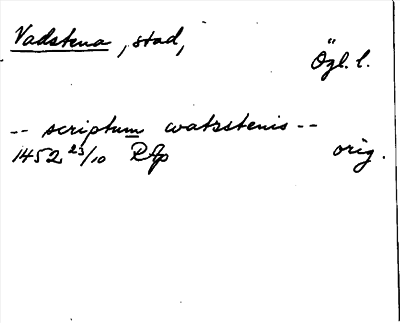 Vadstena, stad,
Ögl. l.
-- scriptum watzstenis --
1452 23/10 Rfp orig.